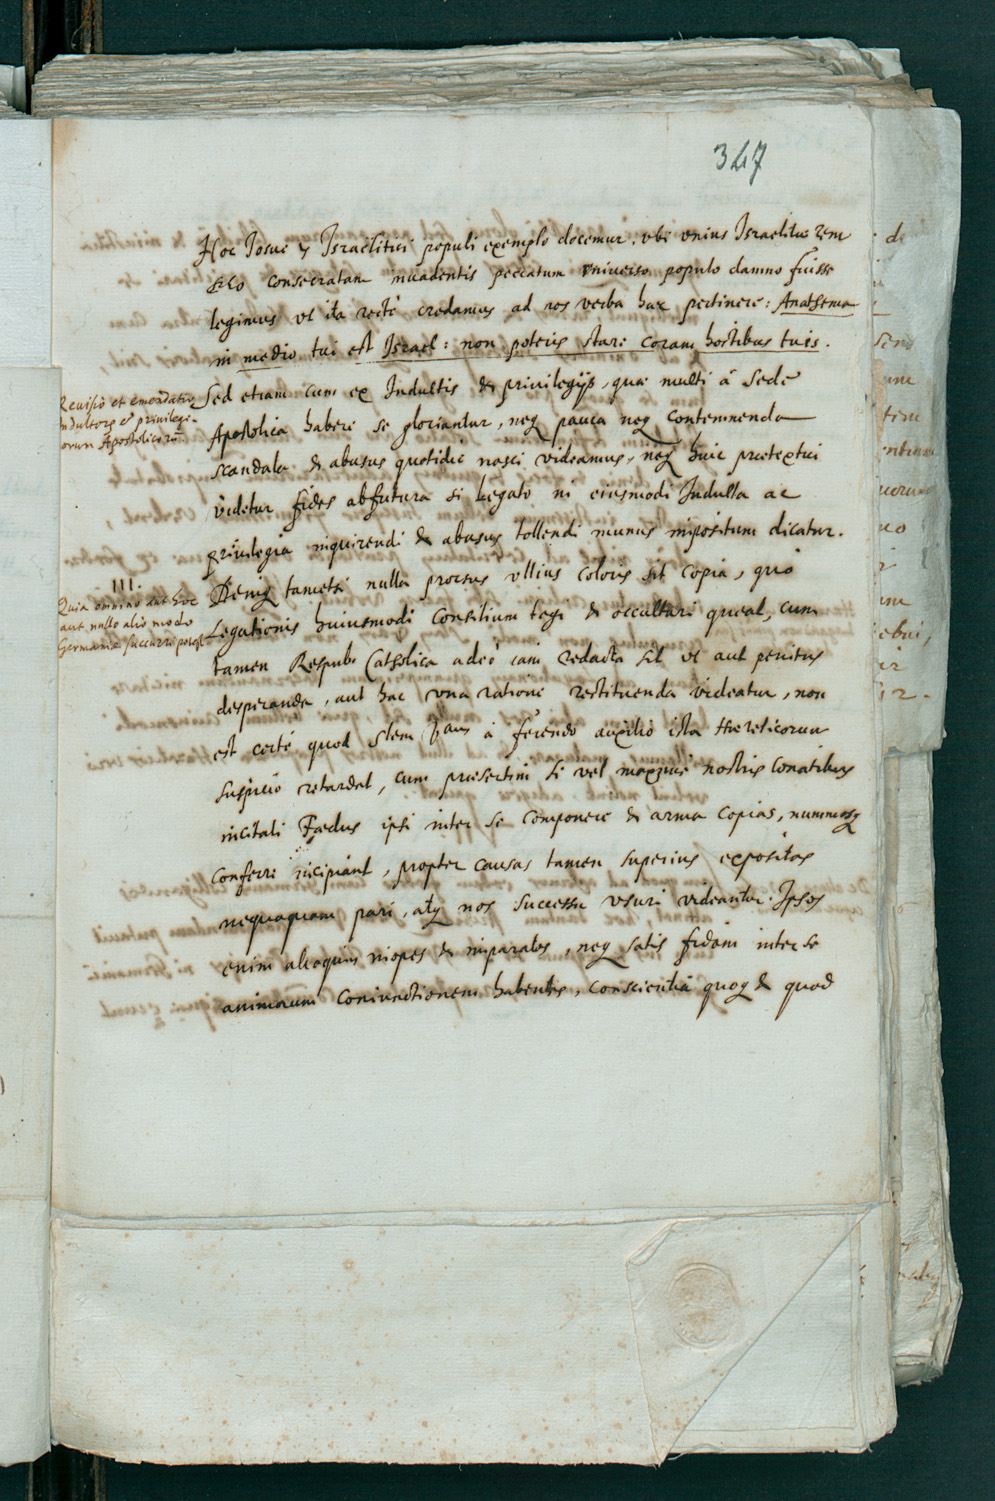 347
Hoc Iosue & Israelitici populi exemplo docemur, vbi vnius Israelitae rem
Deo consecratam inuadentis peccatum vniuerso populo damno fuisse
legimus vt ita recté credamus ad nos verba haec pertinere: Anathema
in medio tui est Israel: non poteris stare coram hostibus tuis.
Reuisio et emendatio
Indultorū & priuilegi-
orum Apostolicorū
Sed etiam cum ex Indultis & priuilegijs, quae multi á Sede
Apostolica habere se gloriantur, neq pauca neq contemnenda
scandala & abusus quotidie nasci videamus, neq huic praetextui
videtur fides abfutura si Legato in eiusmodi Indulta ac
priuilegia inquirendi & abusus tollendi munus impositum dicatur.
III.
Quia omnino aut hoc
aut nullo alio modo
Germaniae succurri potest
Deniq tametsi nulla prorsus vllius coloris sit copia, quo
Legationis huiusmodi Consilium tegi & occultari queat, cum
tamen Respub. Catholica adeó iam redacta sit vt aut penitus
desperanda, aut hac vna ratione restituenda videatur, non
est certé quod Stem Vram á ferendo auxilio ista Haereticorum
suspicio retardet, cum praesertim si vel maximé nostris Conatibus
incitati Foedus ipsi inter se componere & arma copias, nummosq
conferre incipiant, propter causas tamen superius expositas
nequaquam pari, atq nos successu vsuri videantur. Ipsos
enim alioquin inopes & imparatos, neq satis fidam inter se
animorum Coniunctionem habentes, Conscientia quoq & quod